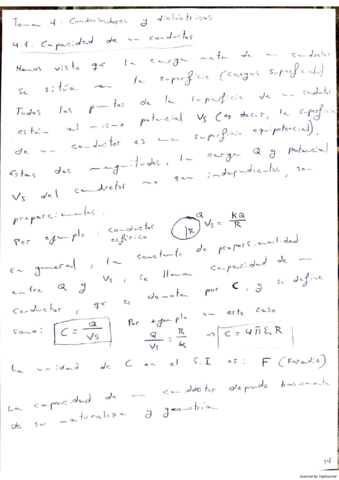 Tema 4. Condensadores y dieléctricos
4.1. Capacidad de un conductor
Hemos visto qe la carga neta de un conductor
se sitúa en la superficie (cargas superficiales)
Todos los puntos de la superficie de un conductor
están al mismo potencial Vs (es decir, la superficie
de un conductor es una superficie equipotencial).
Estas dos magnitudes, la carga Q y potencial
Vs del conductor no son independientes, son
proporcionales.
Por ejemplo: conductor esférico R Q Vs = KQ/R
En general, la constante de proporcionalidad
entre Q y Vs, se llama capacidad de un
conductor, qe se denota por C, y se define
como: C = Q/Vs Por ejemplo en este caso
Q/Vs = R/K → C = 4πε₀R
La unidad de C en el S.I es: F (Faradio)
La capacidad de un conductor depende basicamente
de su naturaleza y geometría
Scanned by TapScanner